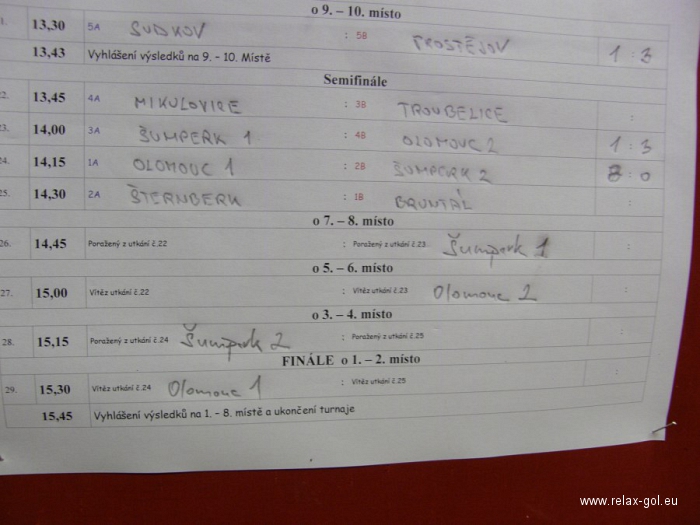 o 9. – 10. místo
1. 13,30 5A SUDKOV : 5B PROSTĚJOV 1 : 3
13,43 Vyhlášení výsledků na 9. - 10. Místě
Semifinále
22. 13,45 4A MIKULOVICE : 3B TROUBELICE :
23. 14,00 3A ŠUMPERK 1 : 4B OLOMOUC 2 1 : 3
24. 14,15 1A OLOMOUC 1 : 2B ŠUMPERK 2 8 : 0
25. 14,30 2A ŠTERNBERK : 1B BRUNTÁL :
o 7. – 8. místo
26. 14,45 Poražený z utkání č.22 : Poražený z utkání č.23 Šumperk 1 :
o 5. – 6. místo
27. 15,00 Vítěz utkání č.22 : Vítěz utkání č.23 Olomouc 2 :
o 3. – 4. místo
28. 15,15 Poražený z utkání č.24 Šumperk 2 : Poražený z utkání č.25 :
FINÁLE o 1. – 2. místo
29. 15,30 Vítěz utkání č.24 Olomouc 1 : Vítěz utkání č.25 :
15,45 Vyhlášení výsledků na 1. - 8. místě a ukončení turnaje
www.relax-gol.eu